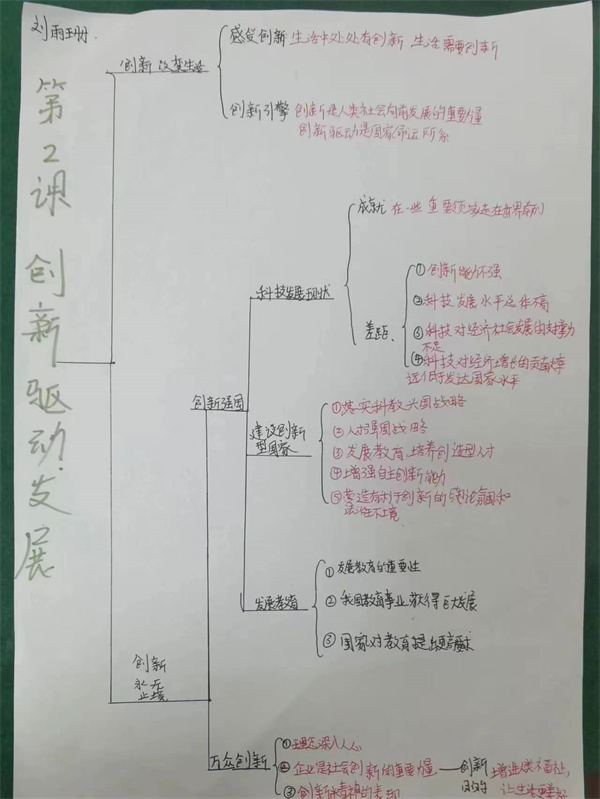 刘雨珊
第2课 创新驱动发展
创新改变生活
感受创新 生活中处处有创新 生活需要创新
创新引擎 创新是人类社会向前发展的重要量
创新驱动是国家命运所系
创新永无止境
创新强国
科技发展现状
成就 在一些重要领域走在世界前列
差距
①创新能力不强
②科技发展水平总体不高
③科技对经济社会发展的支撑力
不足
④科技对经济增长的贡献率
远低于发达国家水平
建设创新
型国家
①落实科教兴国战略
②人才强国战略
③发展教育培养创造型人才
④增强自主创新能力
⑤营造有利于创新的舆论氛围和
法治环境
发展教育
①发展教育的重要性
②我国教育事业获得巨大发展
③国家对教育提出更高要求
万众创新
①理念深入人心
②企业是社会创新的重要力量
③创新
的表现
创新
目的
增进人类福祉,
让生活更美好